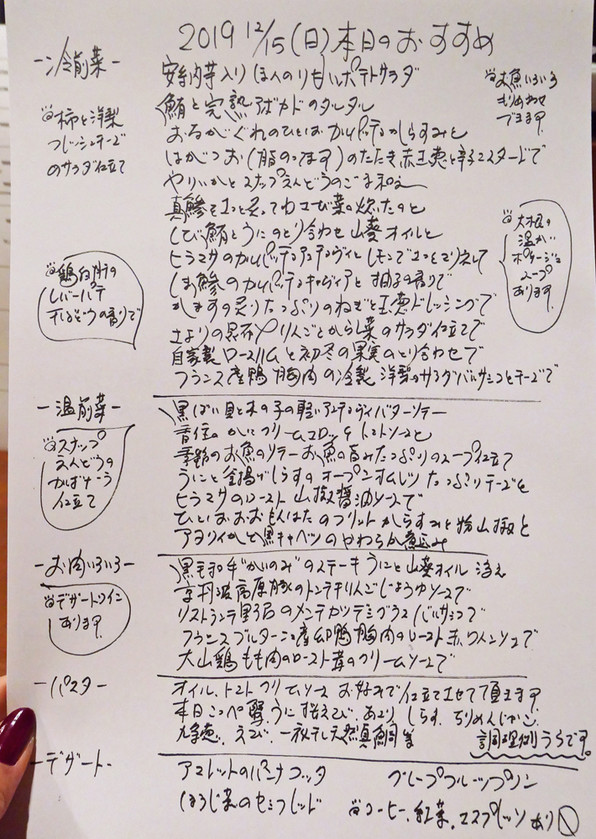 2019 12/15(日)本日のおすすめ
-冷前菜-
安納芋入り ほんのり甘いポテトサラダ
鮪と完熟アボカドのタルタル
おるがじぐれのひとはカルパッチョ からすみと
はがつお(脂のってます)のたたき 赤玉葱と辛子マスタードで
やりいかとスナップえんどうのごま和え
真鯵を
しび鮪とうにのとり合わせ 山葵オイルと
ヒラマサのカルパッチョ アンディーヴと レモンで
しま鯵のカルパッチョ キャヴィアと柚子の香りで
かますの炙り たっぷりのねぎと玉葱ドレッシングで
さよりの昆布〆 りんごとからし菜のサラダ仕立て
自家製ロースハムと初冬の果実のとり合わせで
フランス産鴨胸肉の冷製 洋梨のサラダ バルサミコとチーズで
☆柿と洋梨
フレッシュチーズ
のサラダ仕立て
☆お魚いろいろ
もりあわせ
できます。
☆鶏白肝の
レバーパテ
干しぶどうの香りで
☆大根の
温かい
ポタージュ
スープ
あります。
-温前菜-
黒ばい貝と木の子の軽いアンディーヴバターソテー
香住のかにクリームコロッケ トマトソースと
季節のお魚のソテー お魚の旨みたっぷりのスープ仕立て
うにと釜揚げしらすのオープンオムレツ たっぷりチーズと
ヒラマサのロースト 山椒醤油ソースで
ひとはおおもんはたのフリット からすみと粉山椒と
アヨリイカと黒キャベツのやわらか煮込み
☆スナップ
えんどうの
かばやき
仕立て
-お肉いろいろ-
黒毛和牛"かいのみ"のステーキ うにと山葵オイル 添え
高原豚のトンテキ りんごじょうゆソースで
リストランテ のメンチカツ デミグラス バルサミコで
フランスブルターニュ産 鴨胸肉のロースト 赤ワインソースで
大山鶏もも肉のロースト 茸のクリームソースで
☆デザートワイン
あります。
-パスタ-
オイル、トマト クリームソース お好みで仕立てさせて頂きます。
本日こっぺ蟹、うに 桜えび、あさり しらす、ちりめんじゃこ、
九条葱、えび、一夜干し天然真鯛 等
調理例うらです。
-デザート-
アマレットのパンナコッタ グレープフルーツプリン
ほうじ茶のセミフレッド ☆コーヒー、紅茶、エスプレッソあり